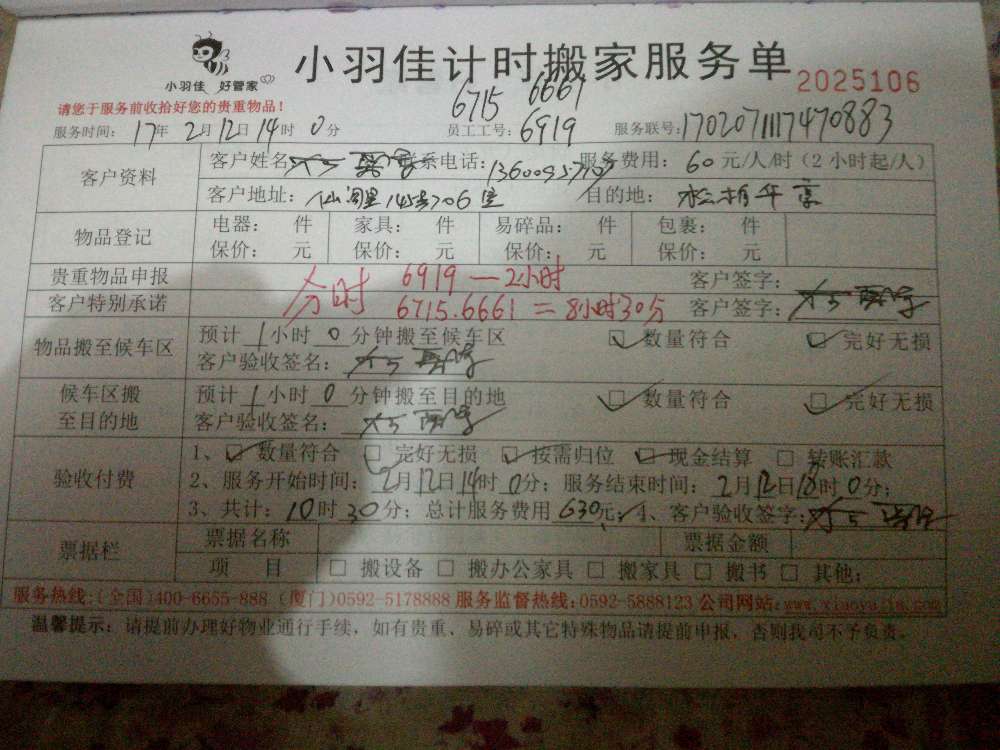 小羽佳 好管家
小羽佳计时搬家服务单 2025106
请您于服务前收拾好您的贵重物品！
6715 6661
服务时间：17年2月12日14时0分 员工工号：6919 服务联号：170207111747 0883
客户资料 客户姓名 联系电话： 服务费用：60元/人/时（2小时起/人）
客户地址： 706室 目的地：
物品登记 电器： 件 家具： 件 易碎品： 件 包裹： 件
保价： 元 保价： 元 保价： 元 保价： 元
贵重物品申报 6919—2小时 客户签字：
客户特别承诺 分时 6715.6661=8小时30分 客户签字：
物品搬至候车区 预计1小时0分钟搬至候车区 ☑数量符合 ☑完好无损
客户验收签名：
候车区搬至目的地 预计1小时0分钟搬至目的地 ☑数量符合 ☑完好无损
客户验收签名：
验收付费 1、☑数量符合 ☑完好无损 ☑按需归位 ☑现金结算 □转账汇款
2、服务开始时间：2月12日14时0分；服务结束时间：2月12日18时0分；
3、共计：10时30分；总计服务费用630元；4、客户验收签字：
票据栏 票据名称 票据金额
项 目 □搬设备 □搬办公家具 □搬家具 □搬书 □其他：
服务热线：(全国)400-6655-888 (厦门)0592-5178888 服务监督热线：0592-5888123 公司网站：www.xiaoyujia.com
温馨提示：请提前办理好物业通行手续，如有贵重、易碎或其它特殊物品请提前申报，否则我司不予负责。